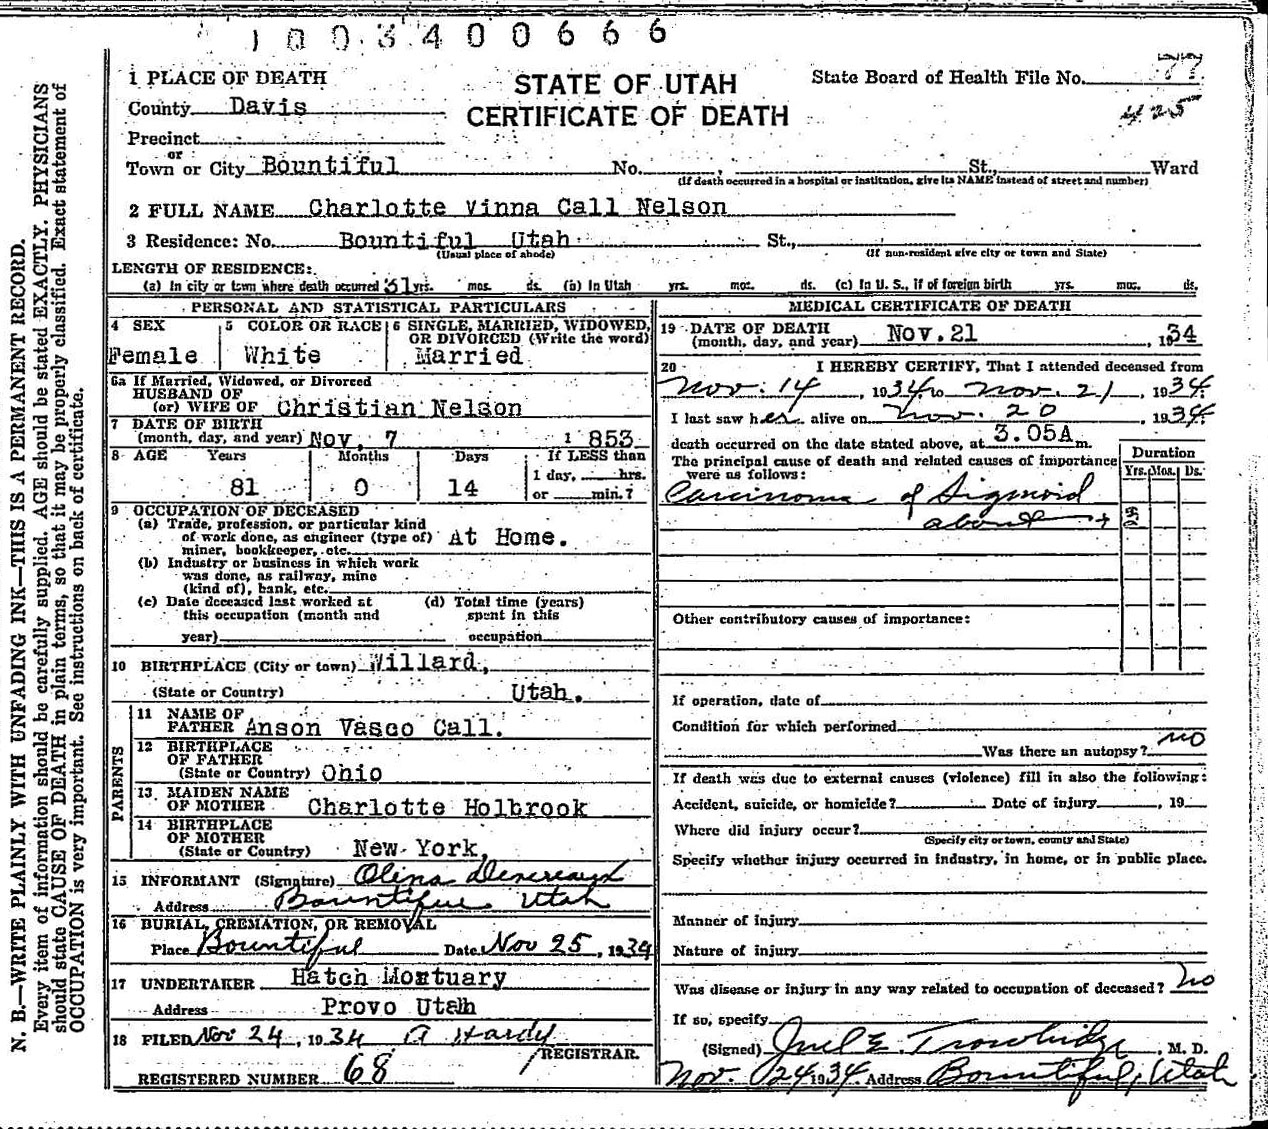 1003400666
1 PLACE OF DEATH
STATE OF UTAH
CERTIFICATE OF DEATH
State Board of Health File No. 77
425
County Davis
Precinct
or
Town or City Bountiful No. St., Ward
(If death occurred in a hospital or institution, give its NAME instead of street and number)
2 FULL NAME Charlotte Vinna Call Nelson
3 Residence: No. Bountiful Utah St.,
(Usual place of abode) (If non-resident give city or town and State)
LENGTH OF RESIDENCE:
(a) In city or town where death occurred 51 yrs. mos. ds. (b) In Utah yrs. mos. ds. (c) In U. S., if of foreign birth yrs. mos. ds.
PERSONAL AND STATISTICAL PARTICULARS
4 SEX 5 COLOR OR RACE 6 SINGLE, MARRIED, WIDOWED,
OR DIVORCED (Write the word)
Female White Married
6a If Married, Widowed, or Divorced
HUSBAND OF
(or) WIFE OF Christian Nelson
7 DATE OF BIRTH
(month, day, and year) Nov. 7 1 853
8 AGE Years Months Days If LESS than
1 day, hrs.
81 0 14 or min.?
9 OCCUPATION OF DECEASED
(a) Trade, profession, or particular kind
of work done, as engineer (type of) At Home.
miner, bookkeeper, etc.
(b) Industry or business in which work
was done, as railway, mine
(kind of), bank, etc.
(c) Date deceased last worked at (d) Total time (years)
this occupation (month and spent in this
year) occupation
10 BIRTHPLACE (City or town) Willard,
(State or Country) Utah.
PARENTS
11 NAME OF
FATHER Anson Vasco Call.
12 BIRTHPLACE
OF FATHER
(State or Country) Ohio
13 MAIDEN NAME
OF MOTHER Charlotte Holbrook
14 BIRTHPLACE
OF MOTHER
(State or Country) New York,
15 INFORMANT (Signature) Olena Devereaux
Address Bountiful Utah
16 BURIAL, CREMATION, OR REMOVAL
Place Bountiful Date Nov 25, 1934
17 UNDERTAKER Hatch Mortuary
Address Provo Utah
18 FILED Nov 24, 1934 A Hardy
REGISTRAR.
REGISTERED NUMBER 68
MEDICAL CERTIFICATE OF DEATH
19 DATE OF DEATH
(month, day, and year) Nov. 21, 1934
20 I HEREBY CERTIFY, That I attended deceased from
Nov. 14, 1934 to Nov. 21, 1934.
I last saw her alive on Nov. 20, 1934.
death occurred on the date stated above, at 3.05A m.
The principal cause of death and related causes of importance
were as follows:
Duration
Yrs. Mos. Ds.
Carcinoma of Sigmoid
about +
Other contributory causes of importance:
If operation, date of
Condition for which performed
Was there an autopsy? no
If death was due to external causes (violence) fill in also the following:
Accident, suicide, or homicide? Date of injury, 19
Where did injury occur?
(Specify city or town, county and State)
Specify whether injury occurred in industry, in home, or in public place.
Manner of injury
Nature of injury
Was disease or injury in any way related to occupation of deceased? No
If so, specify
(Signed) Joel E. Trowbridge, M. D.
Nov. 24 1934 Address Bountiful, Utah
N. B.—WRITE PLAINLY WITH UNFADING INK—THIS IS A PERMANENT RECORD.
Every item of information should be carefully supplied. AGE should be stated EXACTLY. PHYSICIANS
should state CAUSE OF DEATH in plain terms, so that it may be properly classified. Exact statement of
OCCUPATION is very important. See instructions on back of certificate.